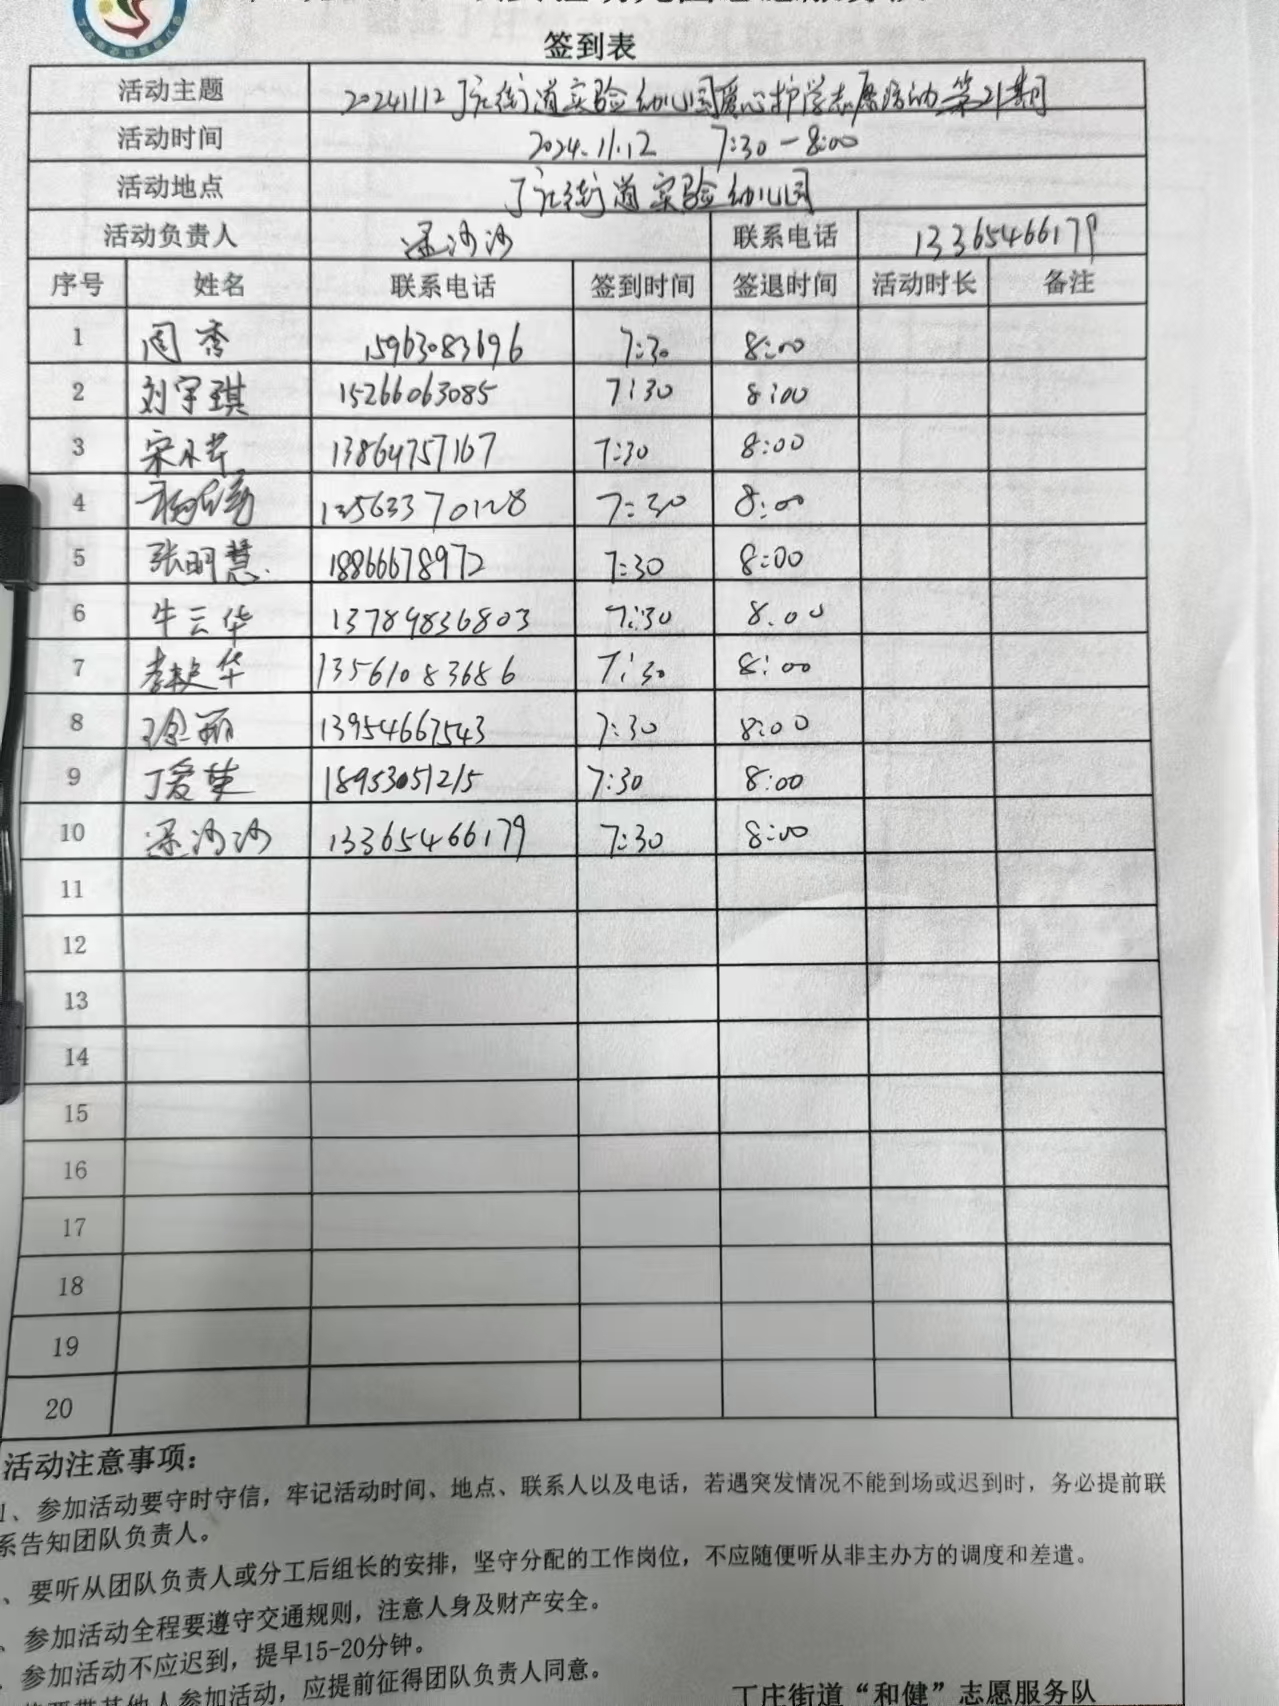 签到表
活动主题 20241112丁庄街道实验幼儿园爱心护学志愿活动第21期
活动时间 2024.11.12 7:30-8:00
活动地点 丁庄街道实验幼儿园
活动负责人 梁沙沙 联系电话 13365466179
序号 姓名 联系电话 签到时间 签退时间 活动时长 备注
1 周香 15963083696 7:30 8:00
2 刘宇琪 15266063085 7:30 8:00
3 宋永芹 13864757167 7:30 8:00
4 7:30 8:00
5 张明慧 18866678972 7:30 8:00
6 牛云华 13789836803 7:30 8.00
7 13561083686 7:30 8:00
8 徐丽 13954667543 7:30 8:00
9 丁爱华 18953051215 7:30 8:00
10 梁沙沙 13365466179 7:30 8:00
11
12
13
14
15
16
17
18
19
20
活动注意事项：
1、参加活动要守时守信，牢记活动时间、地点、联系人以及电话，若遇突发情况不能到场或迟到时，务必提前联
系告知团队负责人。
、要听从团队负责人或分工后组长的安排，坚守分配的工作岗位，不应随便听从非主办方的调度和差遣。
、参加活动全程要遵守交通规则，注意人身及财产安全。
、参加活动不应迟到，提早15-20分钟。
带其他人参加活动，应提前征得团队负责人同意。
丁庄街道“和健”志愿服务队